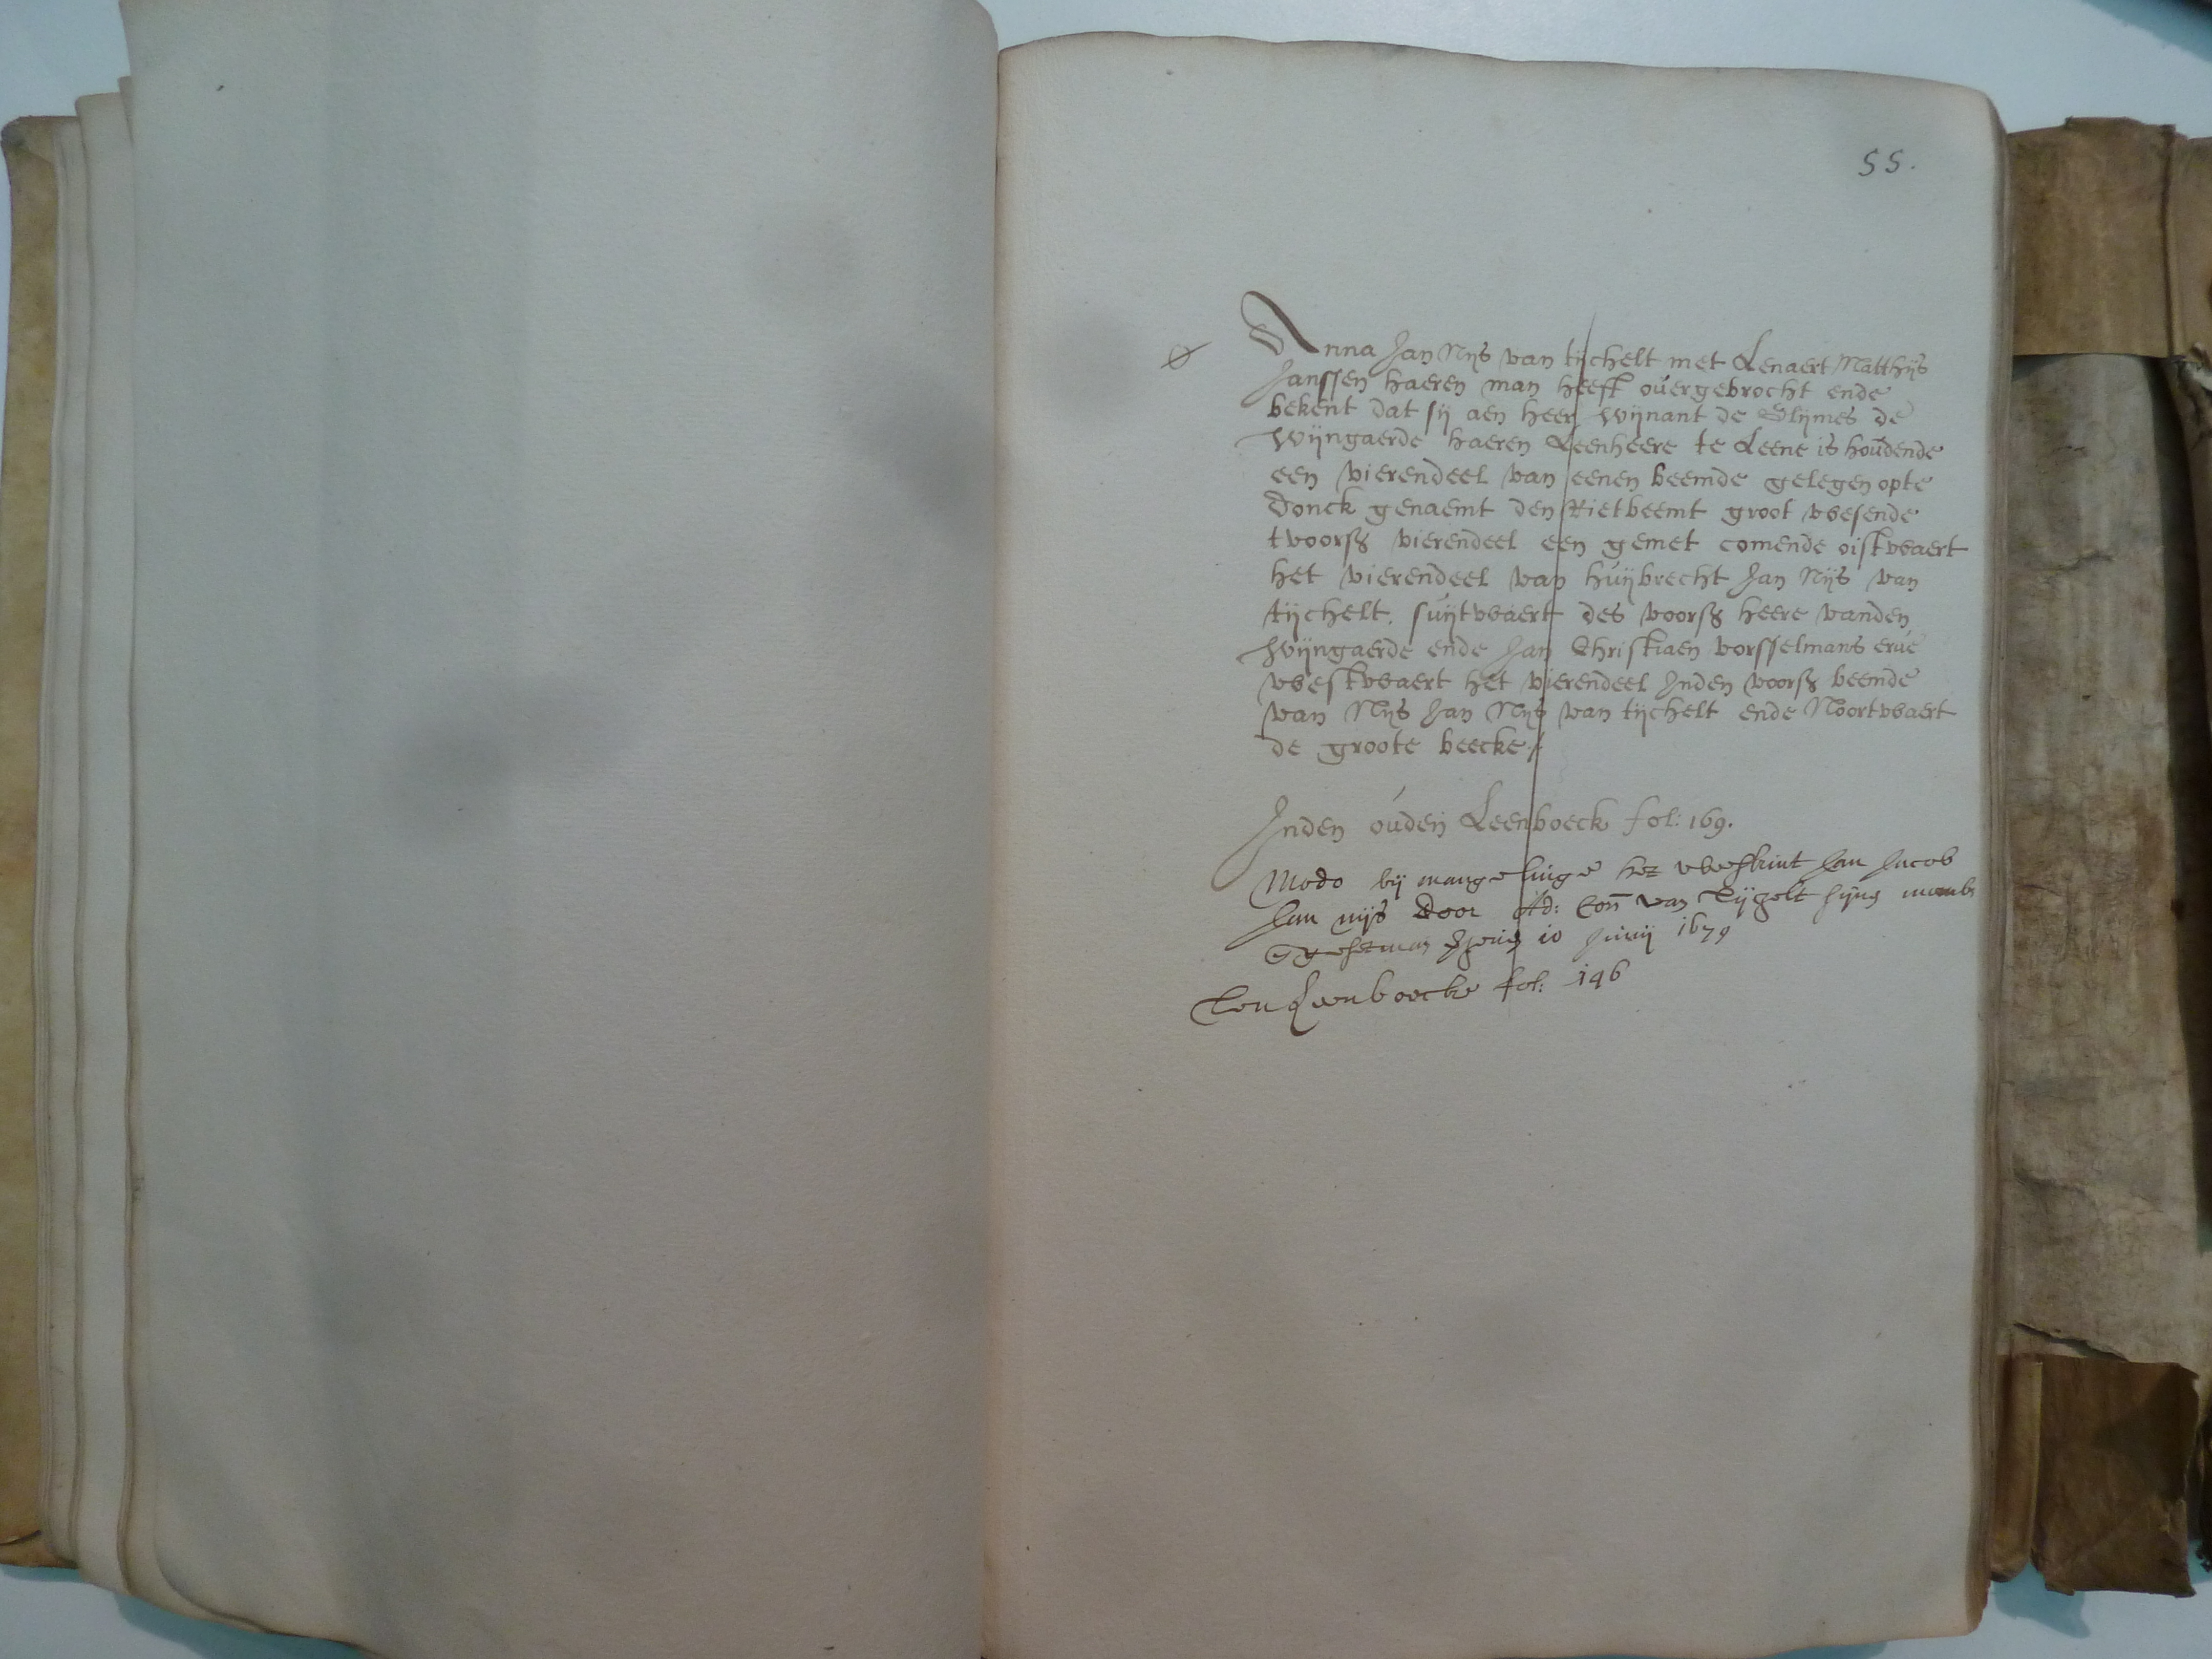 55.
Anna Jan Nijs van tijchelt met Lenaert Matthijs
Janssen haeren man heeft overgebrocht ende
bekent dat sij aen heer Wijnant de Glijmes de
Wijngaerde haeren Leenheere te Leene is houdende
een vierendeel van eenen beemde gelegen opte
Donck genaemt den Rietbeemt groot wesende
tvoors vierendeel een gemet comende oistwaert
het vierendeel van huijbrecht Jan Nijs van
tijchelt, suijtwaert des voors heere vanden
Wijngaerde ende Jan Christiaen vorsselmans erve
westwaert het vierendeel Inden voors beemde
van Nijs Jan Nijs van tijchelt ende Noortwaert
de groote beecke
Inden ouden Leenboeck fol: 169.
Modo bij mangelinge het Jan Jacob
Jan nijs door van Tijgelt sijns
10 Junij 1679
Leenboecke fol: 146